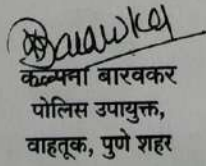 कल्पना बारवकर
पोलिस उपायुक्त,
वाहतूक, पुणे शहर